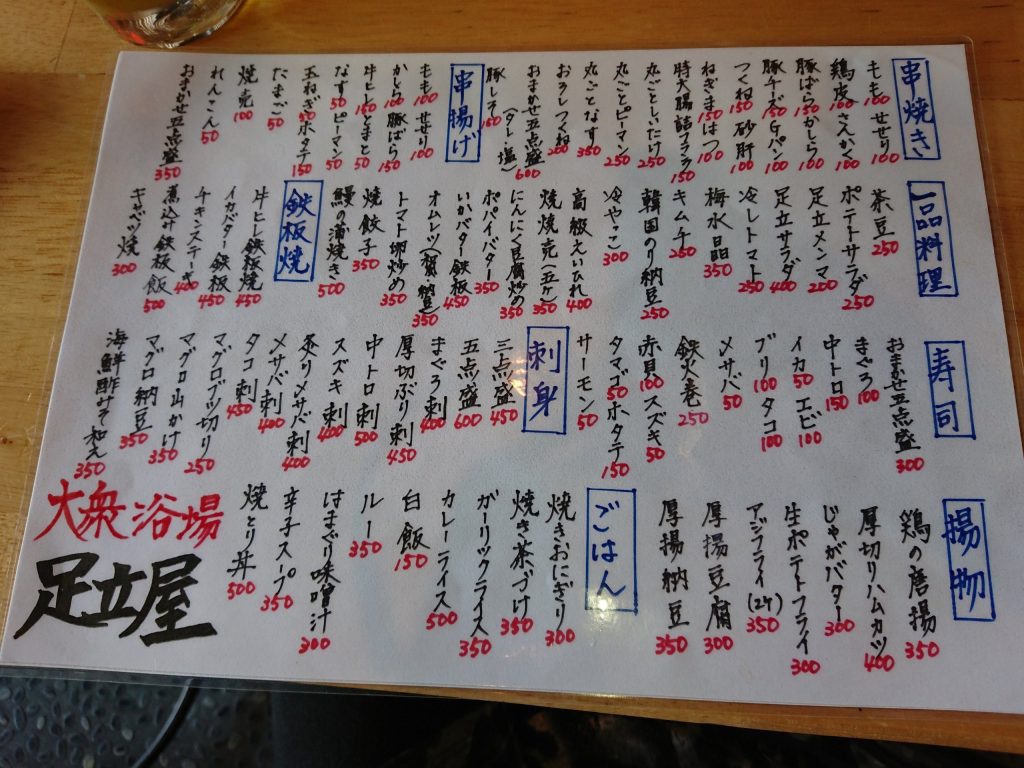 串焼き
もも100 せせり100
鶏皮100 さんかく100
豚ばら150 かしら100
豚チーズ150 Gパン100
つくね150 砂肝100
ねぎま150 はつ100
特大腸詰フランク150
丸ごとしいたけ250
丸ごとピーマン250
丸ごとなす350
おろしつくね200
おまかせ五点盛(タレ・塩)600
豚しそ150
串揚げ
もも100 せせり100
かしら100 豚ばら150
牛ヒレ150 とまと50
なす50 ピーマン50
玉ねぎ50 ホタテ150
たまご50
焼売100
れんこん50
おまかせ五点盛350
一品料理
茶豆250
ポテトサラダ250
足立メンマ200
足立サラダ400
冷しトマト250
梅水晶350
キムチ250
韓国のり納豆250
冷やっこ300
高級えいひれ400
焼焼売(五ヶ)350
にんにく豆腐炒め350
ポパイバター350
いかバター鉄板450
オムレツ(葱、納豆)350
トマト卵炒め350
焼餃子350
鰻の蒲焼き500
鉄板焼
牛ヒレ鉄板焼450
イカバター鉄板450
チキンステーキ400
煮込み鉄板飯500
キャベツ焼300
寿司
おまかせ五点盛300
まぐろ100
中トロ150
イカ50 エビ100
ブリ100 タコ100
メサバ50
鉄火巻250
赤貝100 スズキ50
タマゴ50 ホタテ150
サーモン50
刺身
三点盛450
五点盛600
まぐろ刺400
厚切ぶり刺450
中トロ刺500
スズキ刺400
炙りメサバ刺400
メサバ刺400
タコ刺450
マグロブツ切り250
マグロ山かけ350
マグロ納豆350
海鮮酢みそ和え350
揚物
鶏の唐揚350
厚切りハムカツ400
じゃがバター300
生ポテトフライ300
アジフライ(2ケ)350
厚揚豆腐300
厚揚納豆350
ごはん
焼きおにぎり300
焼き茶づけ350
ガーリックライス350
カレーライス500
白飯150
ルー350
はまぐり味噌汁300
辛子スープ350
焼とり丼500
大衆浴場
足立屋